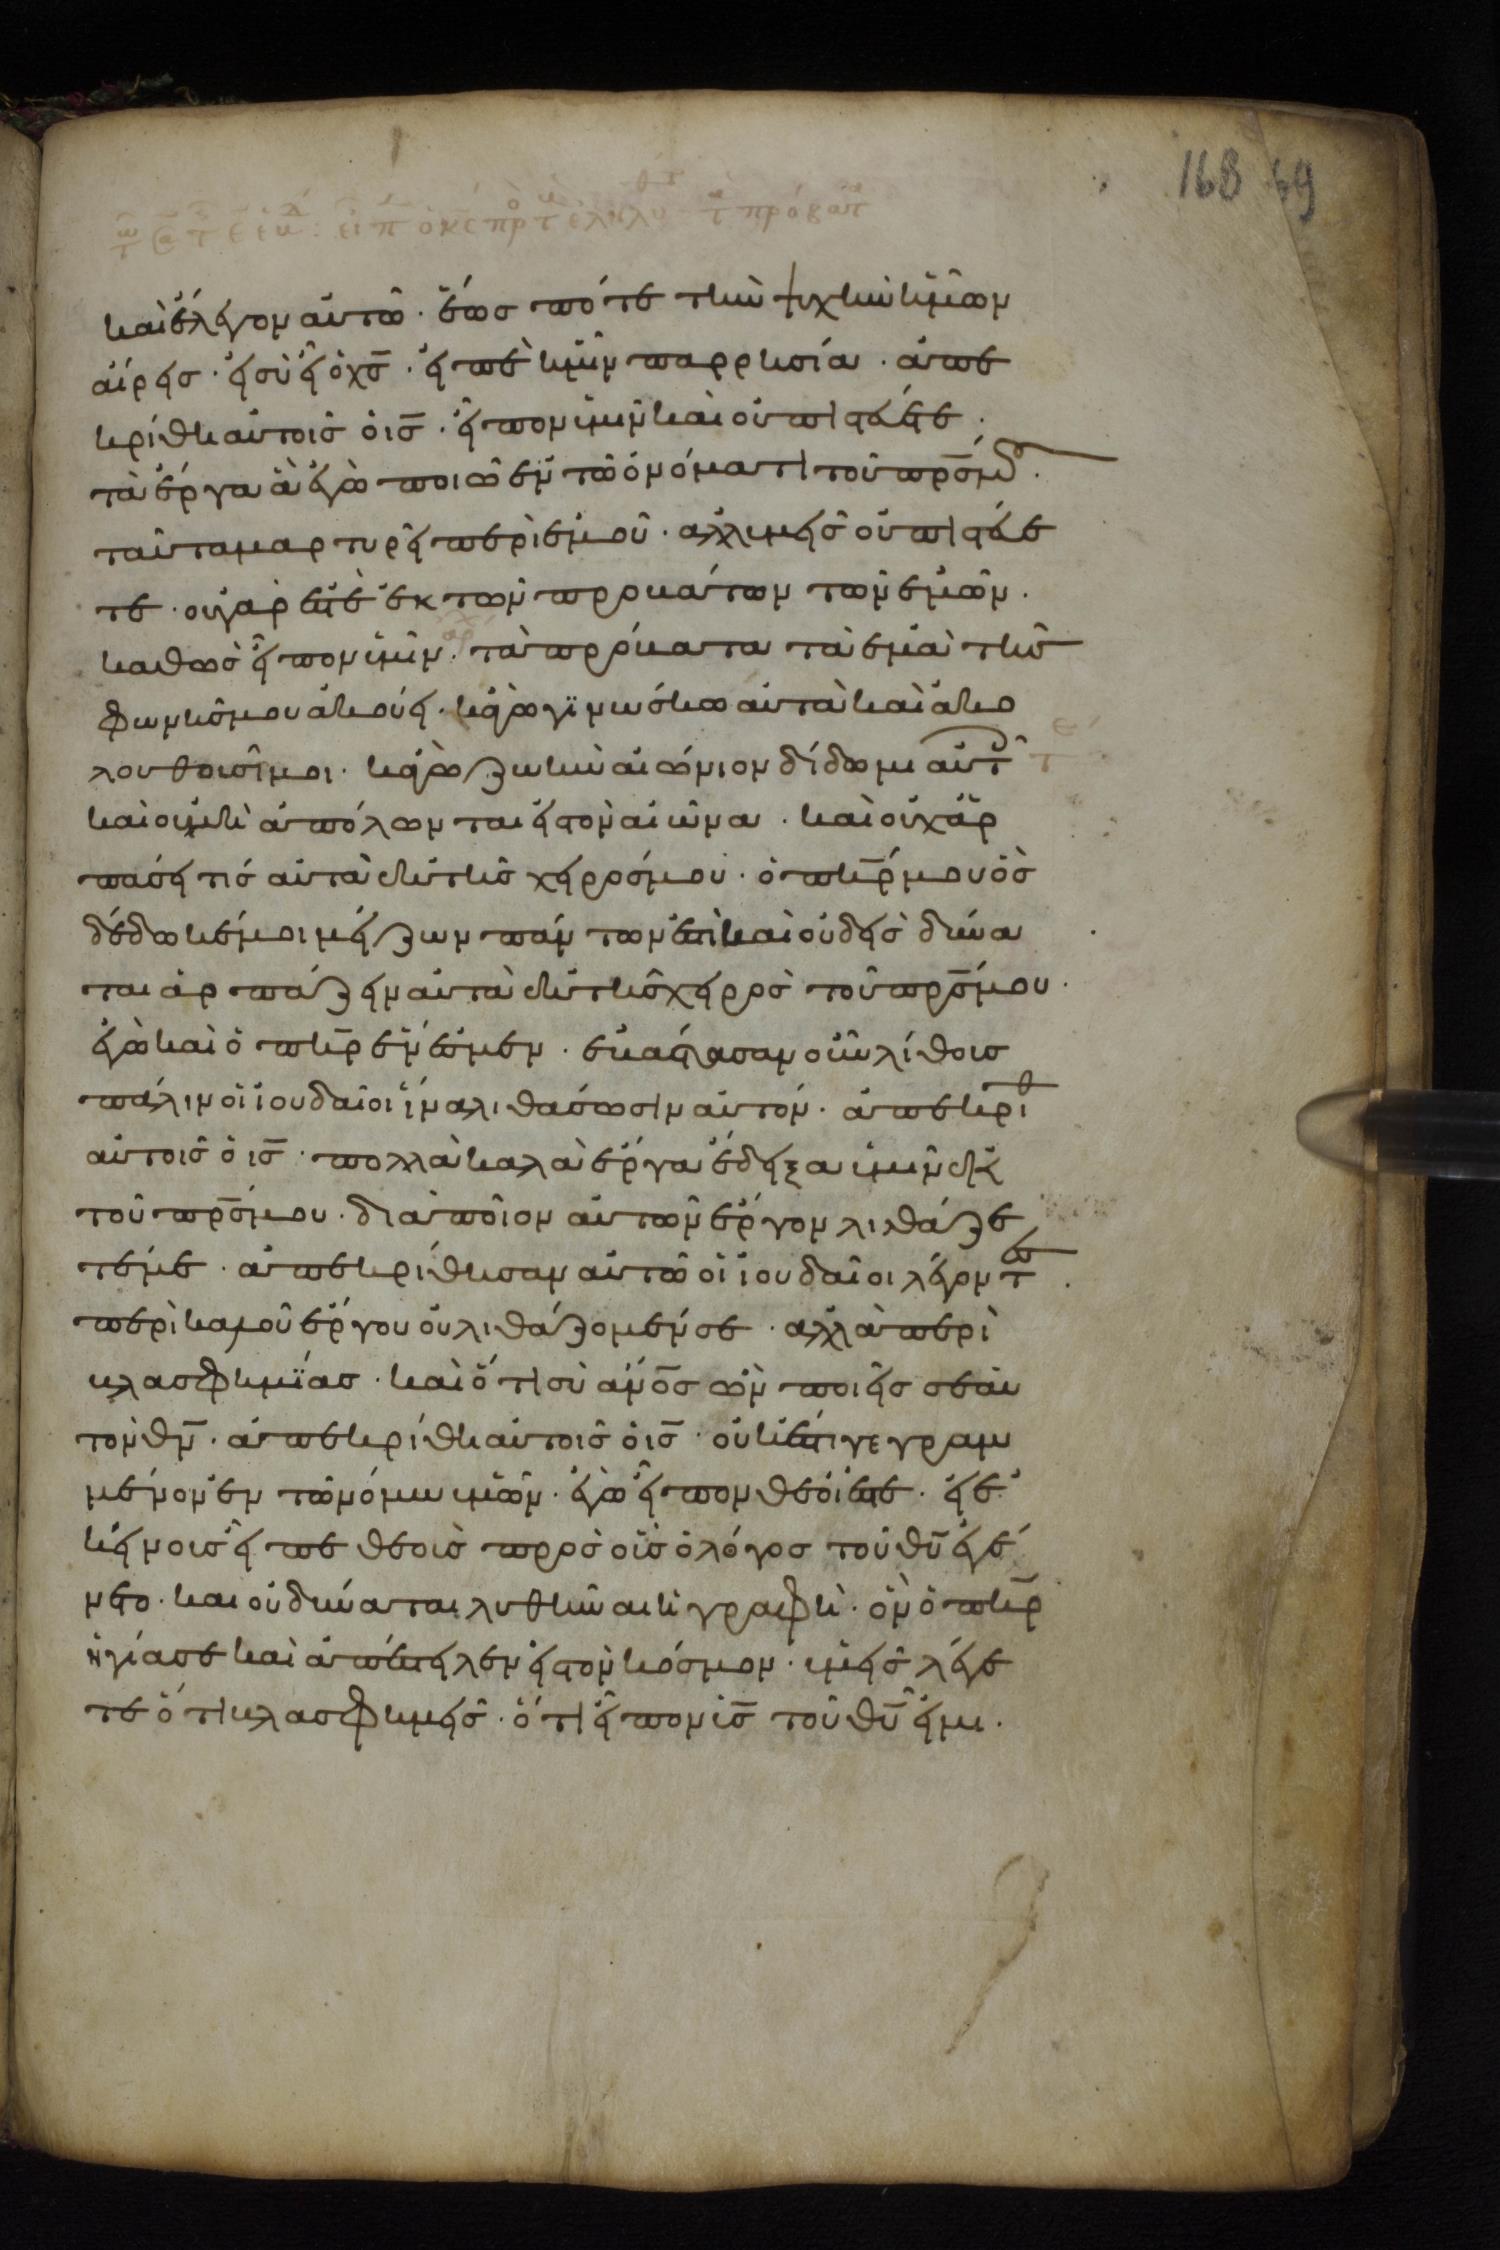 168 69
καὶ ἔλεγον αὐτῶ· ἕως πότε τὴν ψυχὴν ἡμῶν
αἴρεις· εἰ σὺ εἶ ὁ χς̅· εἰπὲ ἡμῖν παρρησία· ἀπε
κρίθη αὐτοῖς ὁ ις̅· εἶπον ὑμῖν καὶ οὐ πιστεύετε·
τὰ ἔργα ἃ ἐγὼ ποιῶ ἐν τῶ ὀνόματι τοῦ πρς̅ μου·
ταῦτα μαρτυρεῖ περὶ ἐμοῦ· ἀλλ' ὑμεῖς οὐ πιστεύε
τε· οὐ γάρ ἐστὲ ἐκ τῶν προβάτων τῶν ἐμῶν·
καθὼς εἶπον ὑμῖν· τὰ πρόβατα τὰ ἐμὰ τῆς
φωνῆς μου ἀκούει· κἀγὼ γϊνώσκω αὐτὰ καὶ ἀκο
λουθοῦσί μοι· κἀγὼ ζωὴν αἰώνιον δίδωμι αὐτοῖς
καὶ οὐ μὴ ἀπόλωνται εἰς τὸν αἰῶνα· καὶ οὐχ ἁρ
πάσει τις αὐτὰ ἐκ τῆς χειρός μου· ὁ πηρ̅ μου ὃς
δέδωκέ μοι μείζων πάντων ἐστὶ καὶ οὐδεὶς δύνα
ται ἁρπάζειν αὐτὰ ἐκ τῆς χειρὸς τοῦ πρς̅ μου·
ἐγὼ καὶ ὁ πηρ̅ ἕν ἐσμεν· ἐβάστασαν οὖν λίθους
πάλιν οἱ ἰουδαῖοι ἵνα λιθάσωσιν αὐτόν· ἀπεκρίθ
αὐτοῖς ὁ ις̅· πολλὰ καλὰ ἔργα ἔδειξα ὑμῖν ἐκ
τοῦ πρς̅ μου· διὰ ποῖον αὐτῶν ἔργον λιθάζε
τέ με· ἀπεκρίθησαν αὐτῶ οἱ ἰουδαῖοι λέγοντες·
περὶ καλοῦ ἔργου οὐ λιθάζομέν σε· ἀλλὰ περὶ
βλασφημϊας· καὶ ὅτι σὺ ἀνο̅ς ὢν ποιεῖς σεαυ
τὸν θν̅· ἀπεκρίθη αὐτοῖς ὁ ις̅· οὐκ ἔστι γεγραμ
μένον ἐν τῶ νόμω ὑμῶν· ἐγὼ εἶπον θεοί ἐστε· εἰ ἐ
κείνους εἶπε θεοὺς πρὸς οὓς ὁ λόγος τοῦ θυ̅ ἐγέ
νετο· καὶ οὐ δύναται λυθῆναι ἡ γραφὴ· ὃν ὁ πηρ̅
ἡγίασε καὶ ἀπέστειλεν εἰς τὸν κόσμον· ὑμεῖς λέγε
τε ὅτι βλασφημεῖς· ὅτι εἶπον υς̅ τοῦ θυ̅ εἰμι·